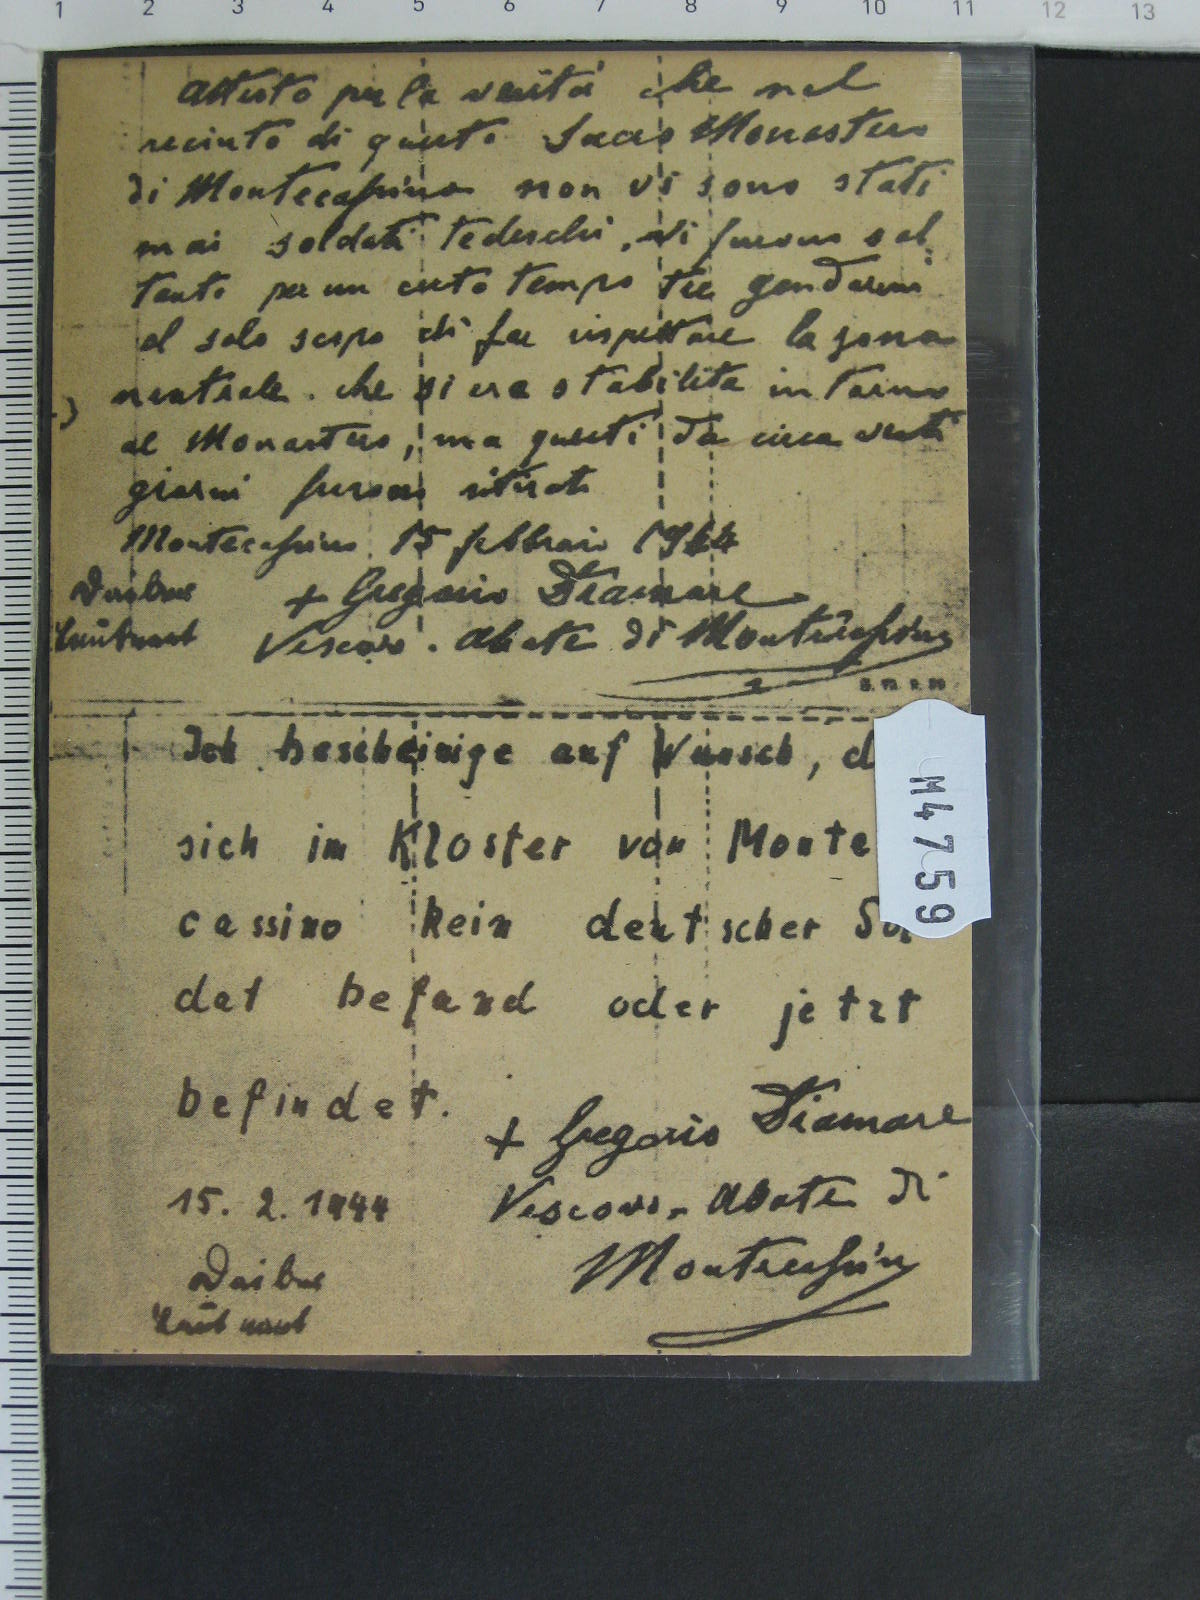 1 2 3 4 5 6 7 8 9 10 11 12 13
Attesto per la verità che nel
recinto di questo Sacro Monastero
di Montecassino non vi sono stati
mai soldati tedeschi, vi furono sol
tanto per un certo tempo tre gendarmi
al solo scopo di far rispettare la zona
neutrale. che si era stabilita intorno
al Monastero, ma questi da circa venti
giorni furono ritirati
Montecassino 15 febbraio 1944
Daiber + Gregorio Diamare
Leutnant Vescovo. Abate di Montecassino
Ich bescheinige auf Wunsch, d
sich im Kloster von Monte
cassino kein deutscher Sol
dat befand oder jetzt
befindet.
+ Gregorio Diamare
15. 2. 1944 Vescovo. Abate di
Daiber Montecassino
Leutnant
M4759